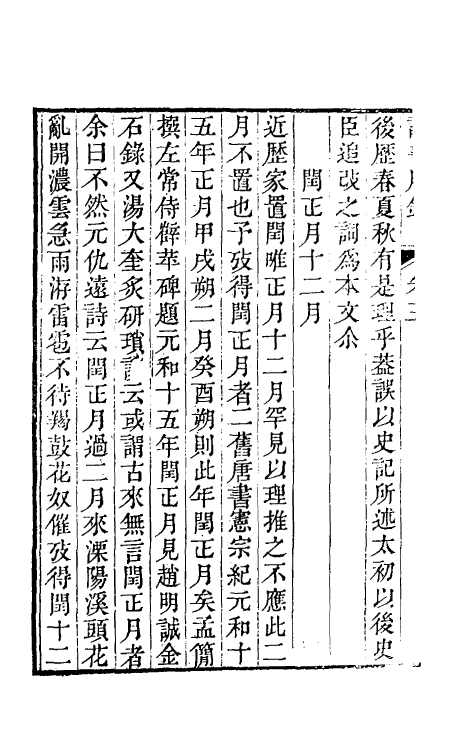 後歷春夏秋有是理乎葢誤以史記所述太初以後史
臣追改之詞爲本文尒
閏正月十二月
近歷家置閏唯正月十二月罕見以理推之不應此二
月不置也予攷得閏正月者二舊唐書憲宗紀元和十
五年正月甲戌朔二月癸酉朔則此年閏正月矣孟簡
撰左常侍薛苹碑題元和十五年閏正月見趙明誠金
石錄又湯大奎炙研瑣言云或謂古來無言閏正月者
余曰不然元仇遠詩云閏正月過二月來溧陽溪頭花
亂開濃雲急雨洊雷雹不待羯鼓花奴催攷得閏十二